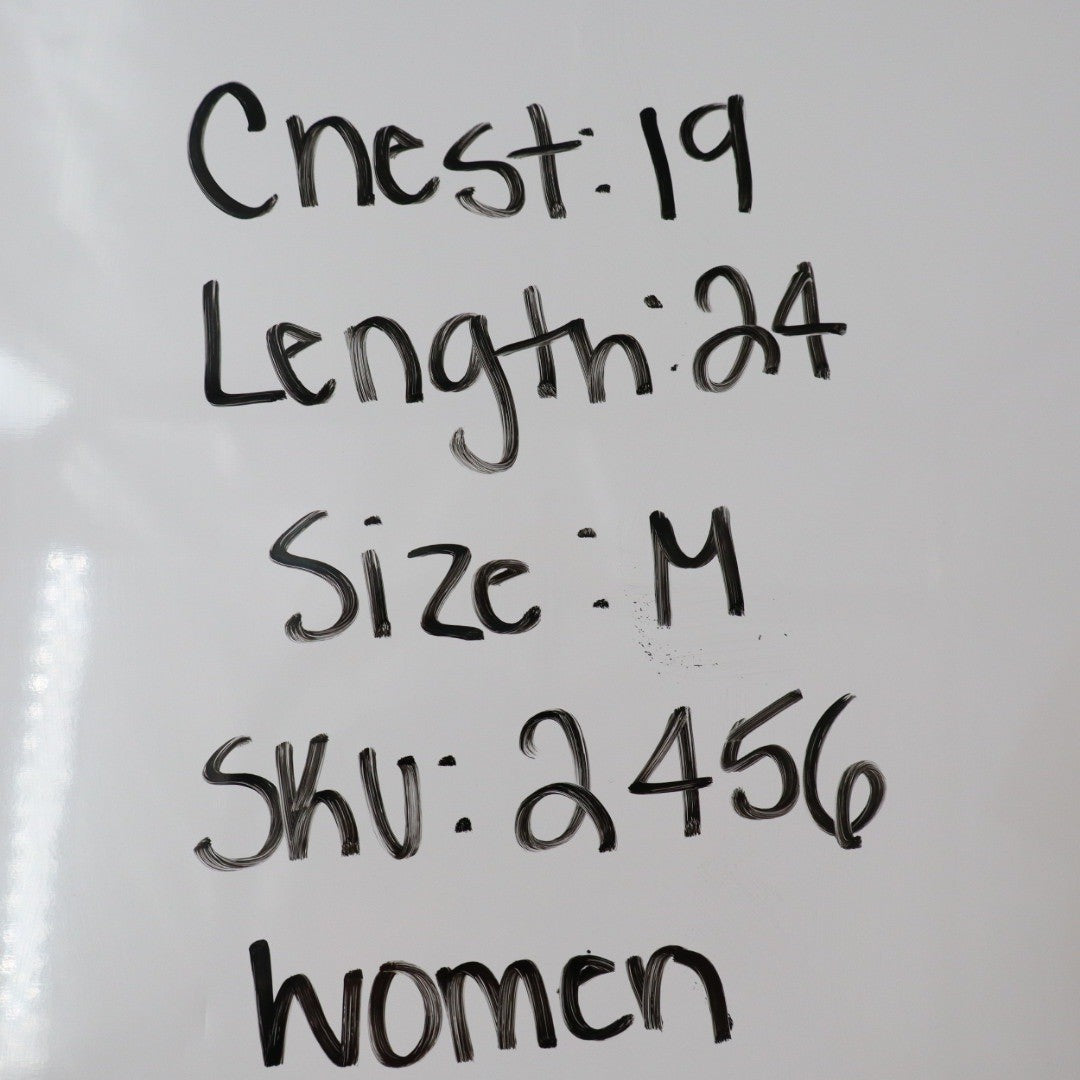 Chest: 19
Length: 24
Size: M
SKU: 2456
Women